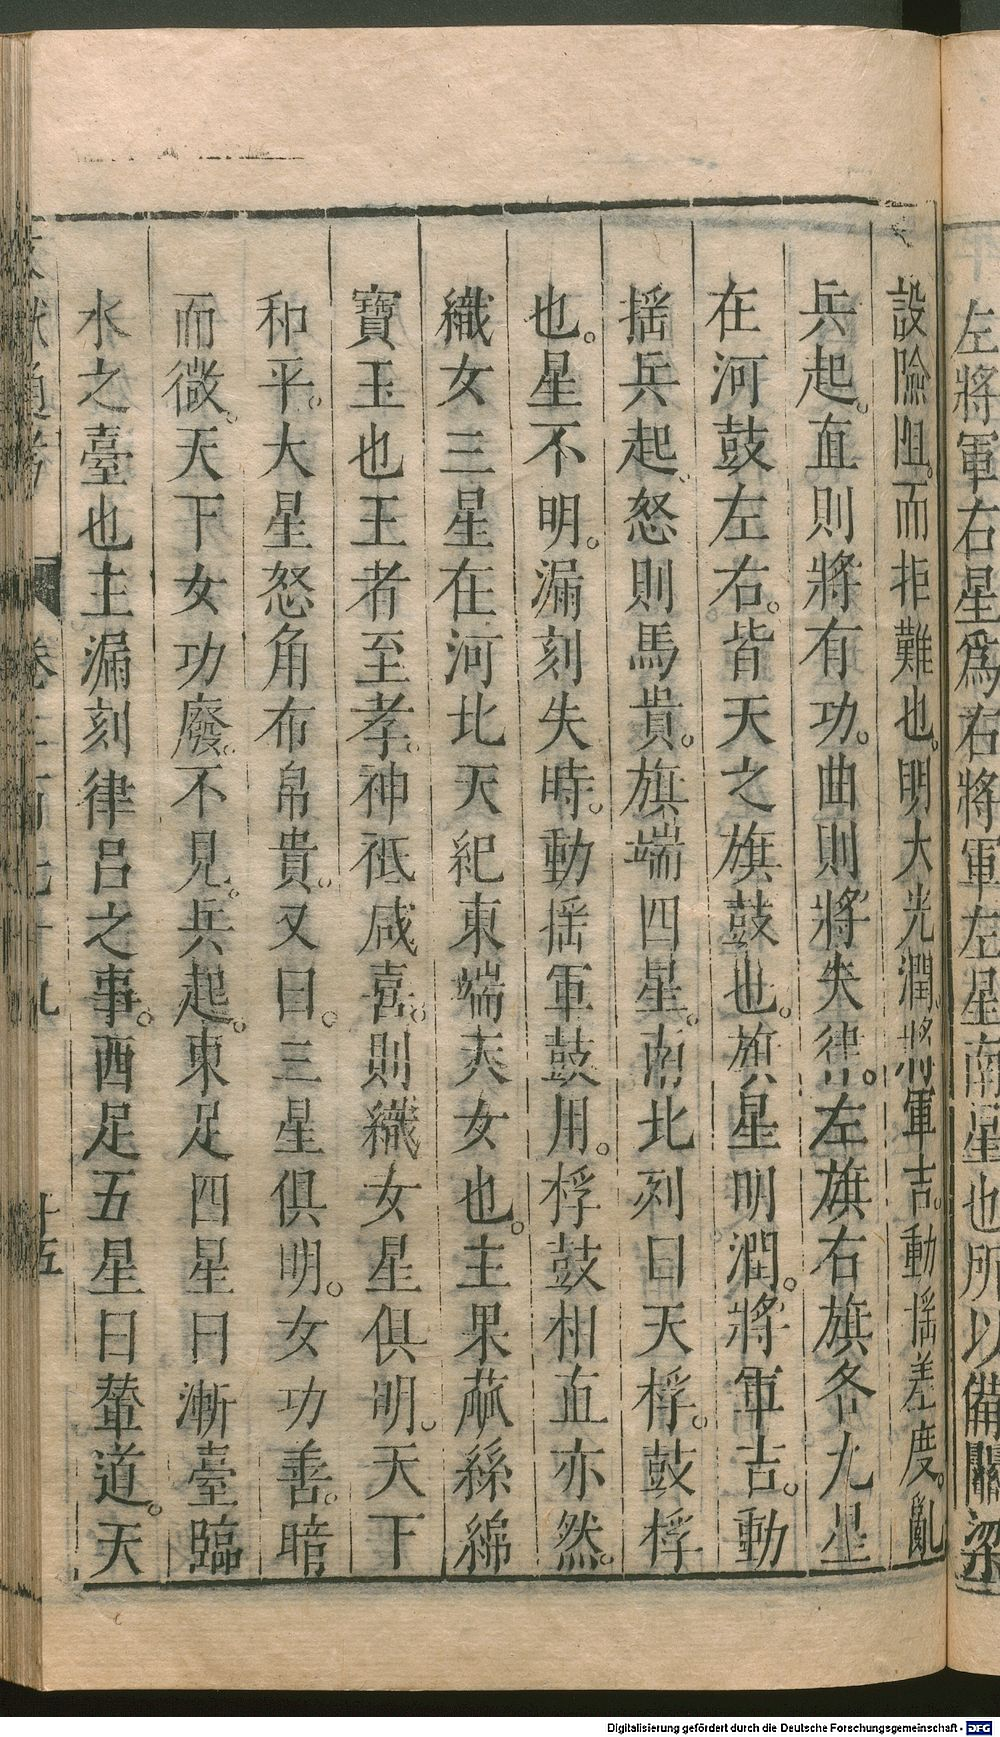 左將軍右星爲右將軍左星南星也所以備關梁
設險阻。而拒難也。明大光潤。將軍吉。動揺差度。亂
兵起。直則將有功。曲則將失律。左旗右旗各九星
在河鼓左右。皆天之旗鼓也。旗星明潤。將軍吉。動
揺兵起。怒則馬貴。旗端四星。南北列曰天桴。鼓桴
也。星不明。漏刻失時。動揺軍鼓用。桴鼓相直亦然。
織女三星在河北天紀東端天女也。主果蓏絲綿
寶玉也王者至孝。神祇咸喜。則織女星俱明。天下
和平。大星怒角布帛貴。又曰。三星俱明。女功善。暗
而微。天下女功廢。不見。兵起。東足四星曰漸臺臨
水之臺也主漏刻律呂之事。西足五星曰輦道。天
文獻通考 卷二百七十九 十五
Digitalisierung gefördert durch die Deutsche Forschungsgemeinschaft - DFG